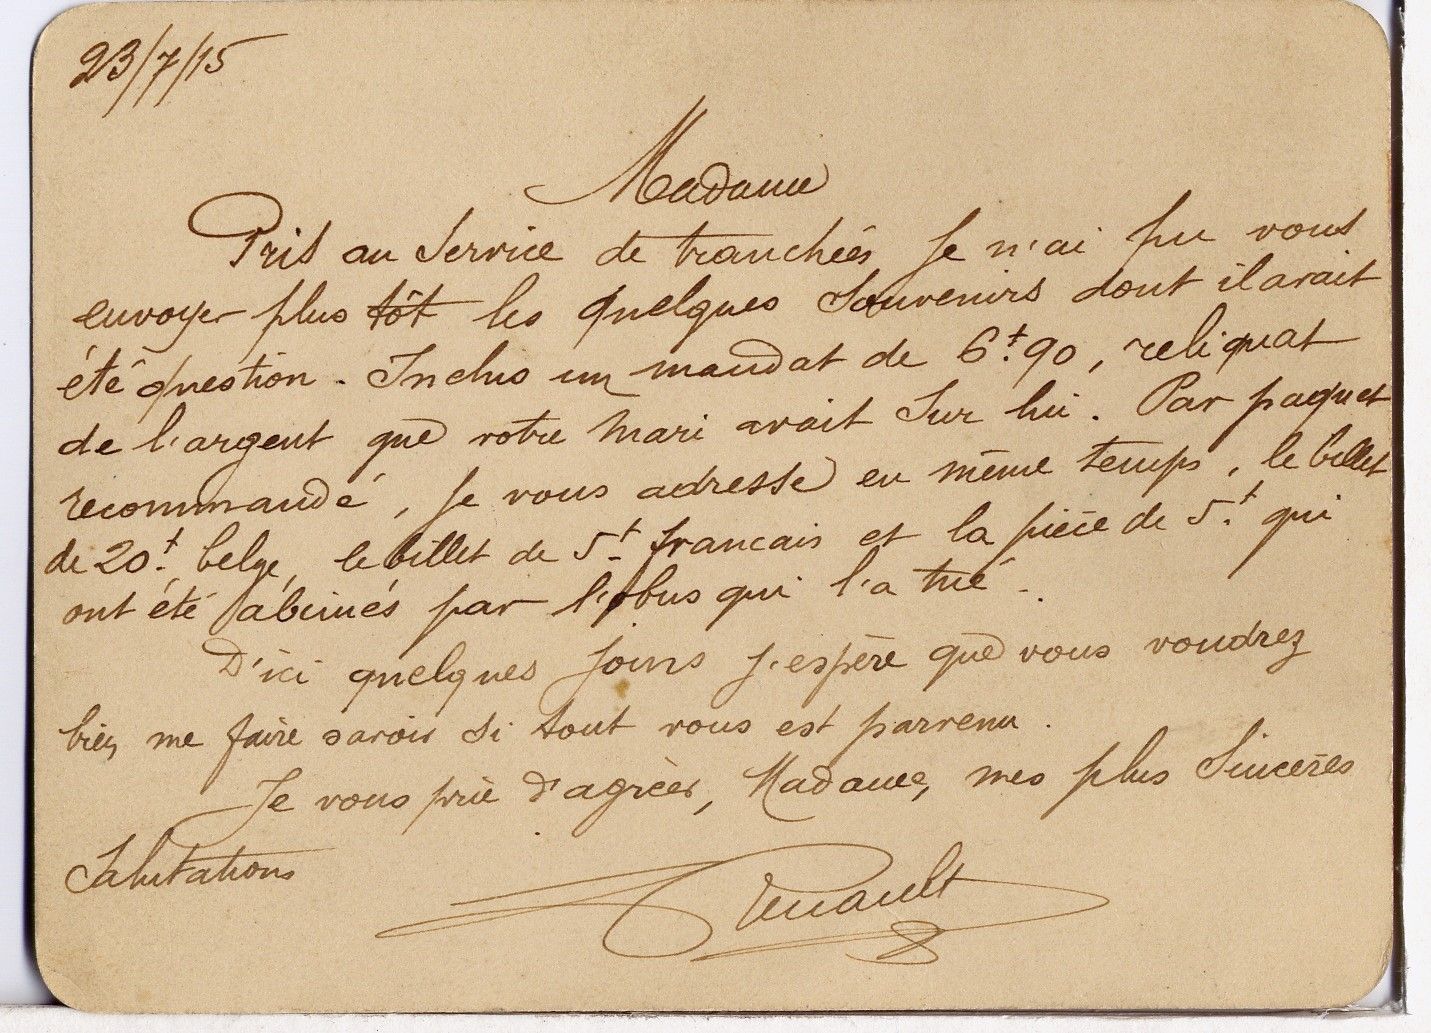 23/7/15
Madame
Pris au service de tranchées je n'ai pu vous
envoyer plus tôt les quelques souvenirs dont il avait
été question. Inclus un mandat de 6f.90, reliquat
de l'argent que votre mari avait sur lui. Par paquet
recommandé, je vous adresse en même temps, le billet
de 20f. belge, le billet de 5f. francais et la pièce de 5f. qui
ont été abimés par l'obus qui l'a tué.
D'ici quelques jours j'espère que vous voudrez
bien me faire savoir si tout vous est parvenu.
Je vous prie d'agréer, Madame, mes plus sincères
salutations